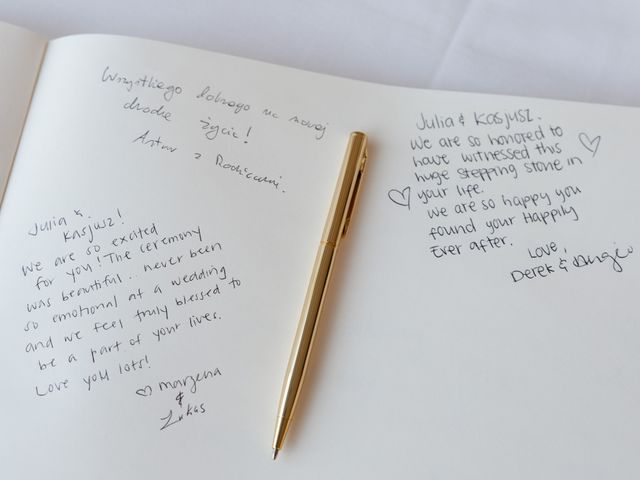 Wszystkiego dobrego na nowej
drodze życia!
Artur z Rodzicami.
Julia &
Kasjusz!
We are so excited
for you! The ceremony
was beautiful.. never been
so emotional at a wedding
and we feel truly blessed to
be a part of your lives.
Love you lots!
♡ marzena
&
Lukas
Julia & Kasjusz.
We are so honored to
have witnessed this
huge stepping stone in
your life.
We are so happy you
found your Happily
Ever after.
Love,
Derek &